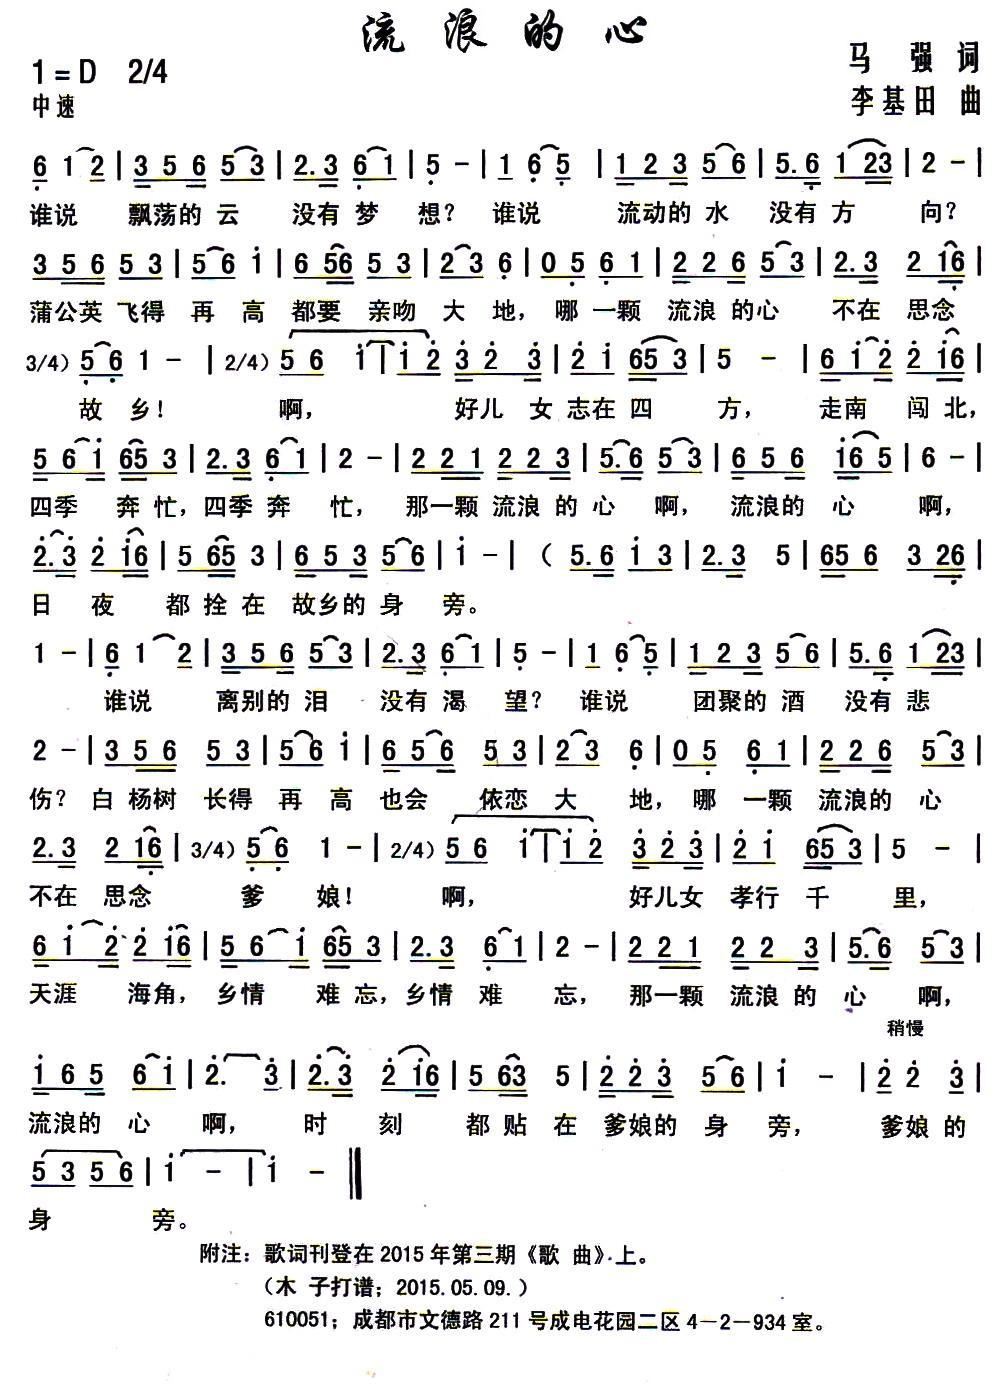 流浪的心
1=D 2/4
马强 词
中速
李基田 曲
6 1 2 | 3 5 6 5 3 | 2. 3 6 1 | 5 - | 1 6 5 | 1 2 3 5 6 | 5. 6 1 23 | 2 - |
谁说 飘荡的 云 没有 梦 想？ 谁说 流动的 水 没有 方 向？
3 5 6 5 3 | 5 6 1 | 6 56 5 3 | 2 3 6 | 0 5 6 1 | 2 2 6 5 3 | 2. 3 2 16 |
蒲公英 飞得 再 高 都要 亲吻 大 地， 哪 一颗 流浪 的心 不在 思念
3/4) 5 6 1 - | 2/4) 5 6 1 | 1 2 3 2 3 | 2 1 65 3 | 5 - | 6 1 2 2 16 |
故 乡！ 啊， 好儿 女 志在 四 方， 走南 闯 北，
5 6 1 65 3 | 2. 3 6 1 | 2 - | 2 2 1 2 2 3 | 5. 6 5 3 | 6 5 6 16 5 | 6 - |
四季 奔 忙，四季 奔 忙， 那一颗 流浪 的 心 啊， 流浪的 心 啊，
2. 3 2 16 | 5 65 3 | 6 5 3 5 6 | 1 - | （ 5. 6 1 3 | 2. 3 5 | 65 6 3 26 |
日 夜 都 拴 在 故乡的 身 旁。
1 - | 6 1 2 | 3 5 6 5 3 | 2. 3 6 1 | 5 - | 1 6 5 | 1 2 3 5 6 | 5. 6 1 23 |
谁说 离别的 泪 没有 渴 望？ 谁说 团聚的 酒 没有 悲
2 - | 3 5 6 5 3 | 5 6 1 | 6 5 6 5 3 | 2 3 6 | 0 5 6 1 | 2 2 6 5 3 |
伤？ 白 杨树 长得 再 高 也会 依恋 大 地， 哪 一颗 流浪的 心
2. 3 2 16 | 3/4) 5 6 1 - | 2/4) 5 6 1 | 1 2 3 2 3 | 2 1 65 3 | 5 - |
不在 思念 爹 娘！ 啊， 好儿女 孝行 千 里，
6 1 2 2 16 | 5 6 1 65 3 | 2. 3 6 1 | 2 - | 2 2 1 2 2 3 | 5. 6 5 3 |
天涯 海角，乡情 难 忘，乡情 难 忘， 那一颗 流浪 的 心 啊，
稍慢
1 6 5 6 1 | 2. 3 | 2. 3 2 16 | 5 63 5 | 2 2 3 5 6 | 1 - | 2 2 3 |
流浪的 心 啊， 时 刻 都 贴 在 爹娘的 身 旁， 爹娘 的
5 3 5 6 | 1 - | 1 - ‖
身 旁。
附注：歌词刊登在2015年第三期《歌 曲》上。
（木 子打谱；2015.05.09.）
610051；成都市文德路211号成电花园二区4－2－934室。